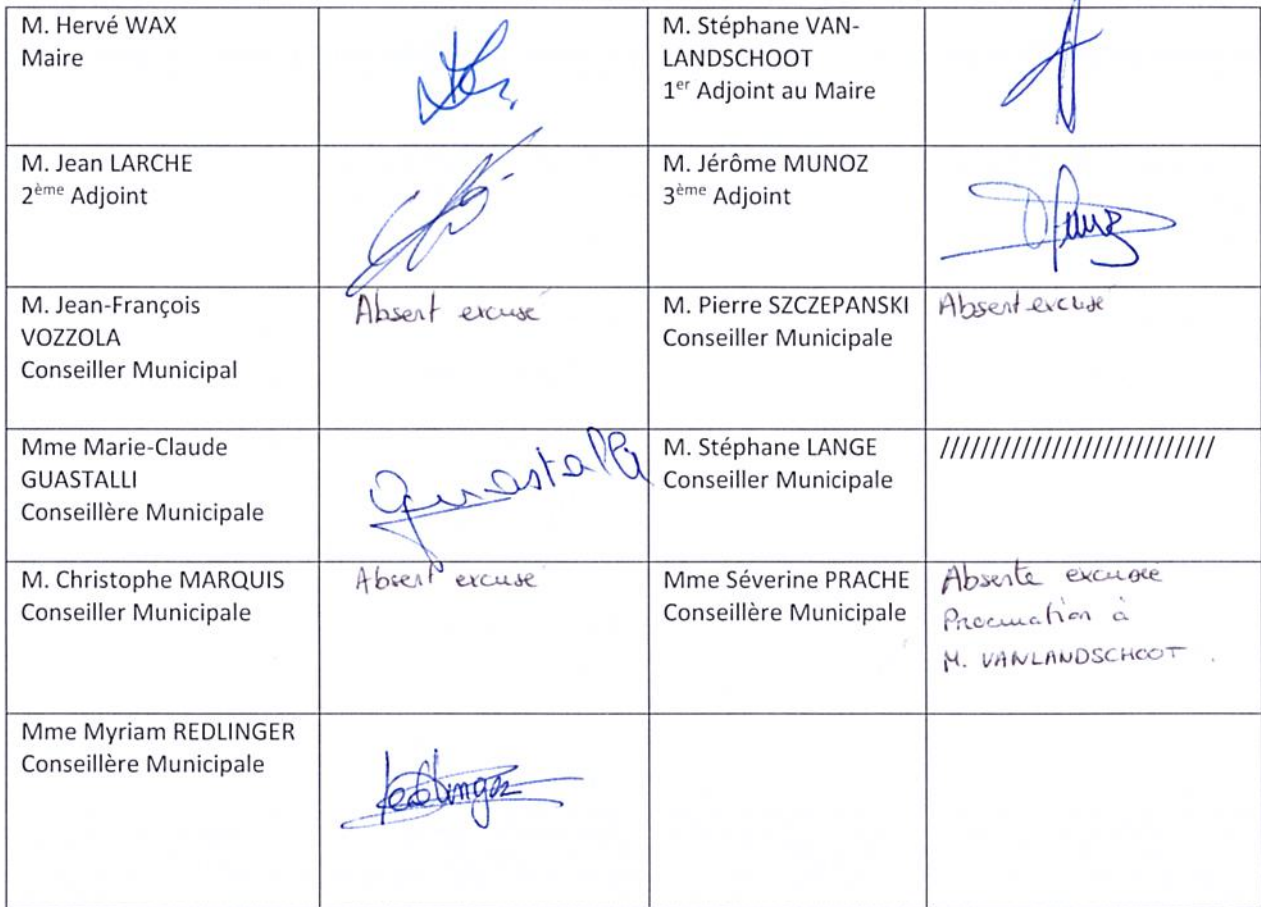 M. Hervé WAX
Maire
M. Stéphane VAN-
LANDSCHOOT
1er Adjoint au Maire
M. Jean LARCHE
2ème Adjoint
M. Jérôme MUNOZ
3ème Adjoint
M. Jean-François
VOZZOLA
Conseiller Municipal
Absent excusé
M. Pierre SZCZEPANSKI
Conseiller Municipale
Absent excusé
Mme Marie-Claude
GUASTALLI
Conseillère Municipale
Guastalli
M. Stéphane LANGE
Conseiller Municipale
///////////////////////////
M. Christophe MARQUIS
Conseiller Municipale
Absent excusé
Mme Séverine PRACHE
Conseillère Municipale
Absente excusée
Procuration à
M. VANLANDSCHOOT.
Mme Myriam REDLINGER
Conseillère Municipale
Redlinger